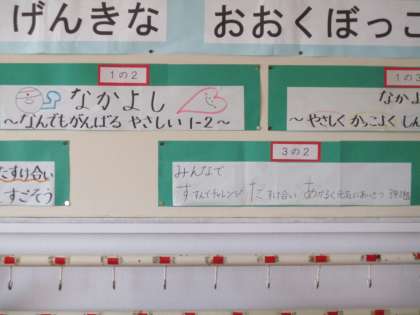 げんきな おおくぼっこ
1の2
なかよし
～なんでもがんばる やさしい 1-2～
1の3
なかよ
～やさしく かっこよく しん
たすけ合い
すごそう
3の2
みんなで
すすんでチャレンジ たすけ合い あかるく元気にあいさつ